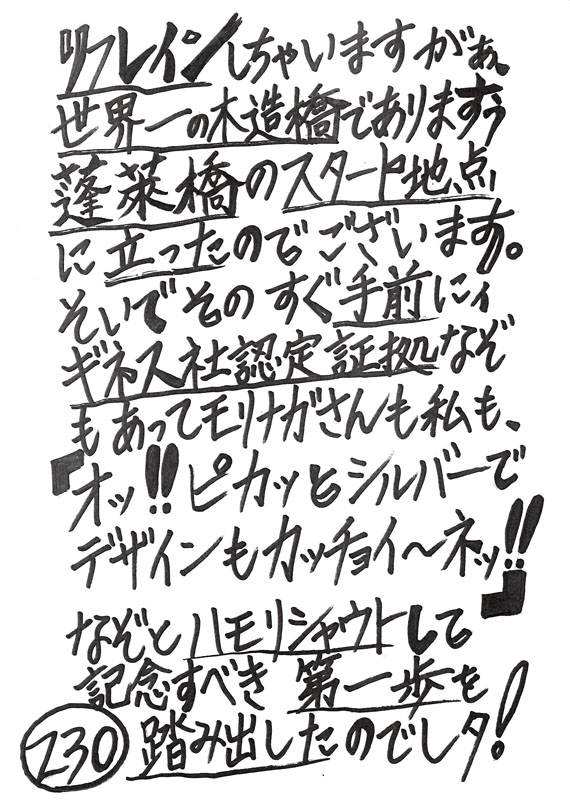 リフレインしちゃいますがぁ、
世界一の木造橋でありますぅ
蓬莱橋のスタート地点
に立ったのでございます。
そいでそのすぐ手前にィ
ギネス社認定証拠なぞ
もあってモリナガさんも私も、
『オッ!!ピカッとシルバーで
デザインもカッチョイ〜ネッ!!』
なぞとハモリシャウトして
記念すべき 第一歩を
230 踏み出したのでしタ!